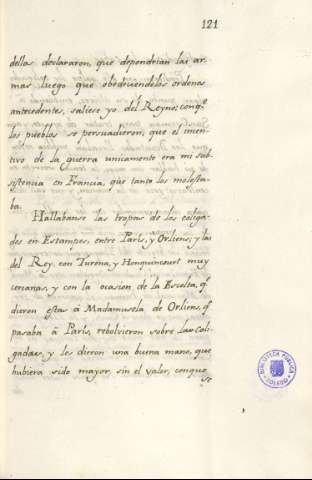 121
dellas declararon, que dependrian las ar-
mas luego que obedeciendolos ordenes
antecedentes, saliese yo del Reyno; conq.e
los pueblos se persuadieron, que el incen-
tivo de la guerra unicamente era mi sub-
sistencia en Francia, que tanto los molesta-
ba.
Hallabanse las tropas de los coliga-
dos en Estampes, entre París, y Orliens; y las
del Rey con Turena, y Honquincourt muy
cercanas, y con la ocasion de la Escolta, q.e
dieron estas á Madamusela de Orliens, q.e
pasaba á París, rebolvieron sobre las Coli-
gadas, y les dieron una buena mano, que
hubiera sido mayor, sin el valor, conque
se
BIBLIOTECA PUBLICA
TOLEDO